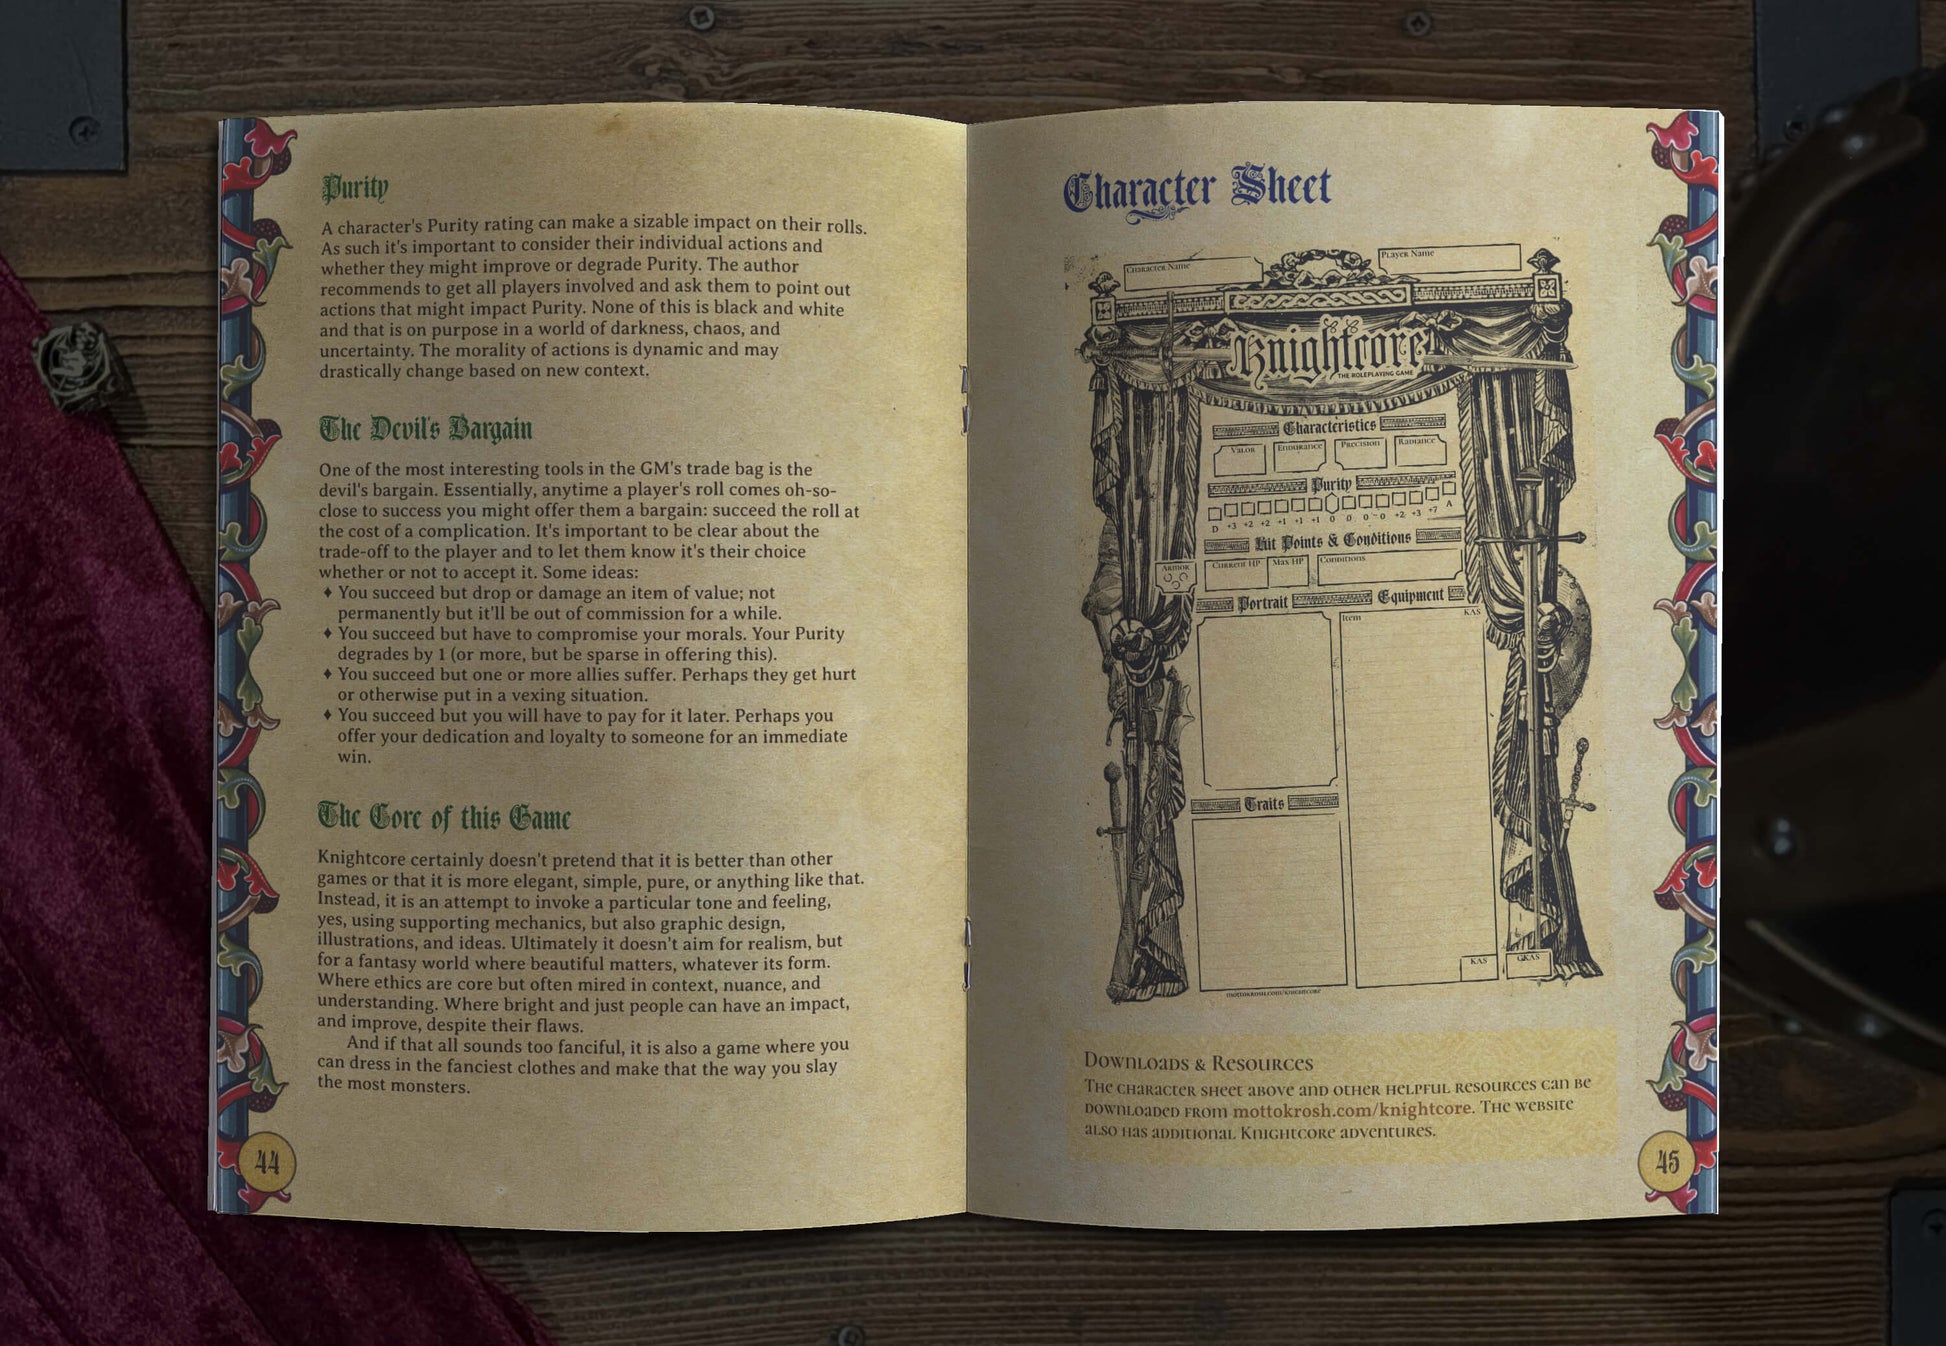 Purity
A character's Purity rating can make a sizable impact on their rolls.
As such it's important to consider their individual actions and
whether they might improve or degrade Purity. The author
recommends to get all players involved and ask them to point out
actions that might impact Purity. None of this is black and white
and that is on purpose in a world of darkness, chaos, and
uncertainty. The morality of actions is dynamic and may
drastically change based on new context.
The Devil's Bargain
One of the most interesting tools in the GM's trade bag is the
devil's bargain. Essentially, anytime a player's roll comes oh-so-
close to success you might offer them a bargain: succeed the roll at
the cost of a complication. It's important to be clear about the
trade-off to the player and to let them know it's their choice
whether or not to accept it. Some ideas:
♦ You succeed but drop or damage an item of value; not
permanently but it'll be out of commission for a while.
♦ You succeed but have to compromise your morals. Your Purity
degrades by 1 (or more, but be sparse in offering this).
♦ You succeed but one or more allies suffer. Perhaps they get hurt
or otherwise put in a vexing situation.
♦ You succeed but you will have to pay for it later. Perhaps you
offer your dedication and loyalty to someone for an immediate
win.
The Core of this Game
Knightcore certainly doesn't pretend that it is better than other
games or that it is more elegant, simple, pure, or anything like that.
Instead, it is an attempt to invoke a particular tone and feeling,
yes, using supporting mechanics, but also graphic design,
illustrations, and ideas. Ultimately it doesn't aim for realism, but
for a fantasy world where beautiful matters, whatever its form.
Where ethics are core but often mired in context, nuance, and
understanding. Where bright and just people can have an impact,
and improve, despite their flaws.
And if that all sounds too fanciful, it is also a game where you
can dress in the fanciest clothes and make that the way you slay
the most monsters.
44
Character Sheet
Character Name
Player Name
Knightcore
THE ROLEPLAYING GAME
Characteristics
Valor Endurance Precision Radiance
Purity
D +3 +2 +2 +1 +1 +1 0 0 0 -0 +2 +3 +7 A
Hit Points & Conditions
Armor Current HP Max HP Conditions
Portrait Equipment
Item KAS
Traits
KAS GKAS
mottokrosh.com/knightcore
Downloads & Resources
The character sheet above and other helpful resources can be
downloaded from mottokrosh.com/knightcore. The website
also has additional Knightcore adventures.
45